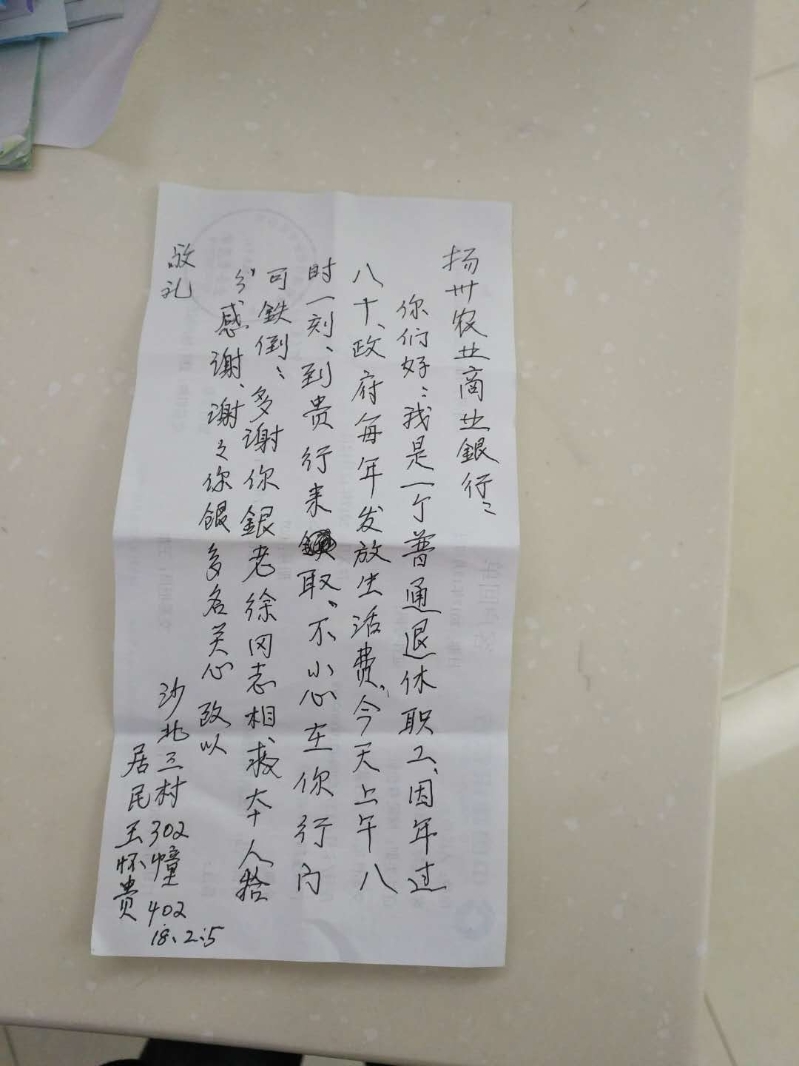 扬州农业商业銀行：
你们好：我是一个普通退休职工、因年过
八十、政府每年发放生活费、今天上午八
时一刻、到贵行来取、不小心在你行内
可鉄倒、多谢你銀老徐同志相救本人拾
分感谢、谢之你銀多名关心 致以
敬礼
沙北三村302幢402
居民王怀贵
18.2.5